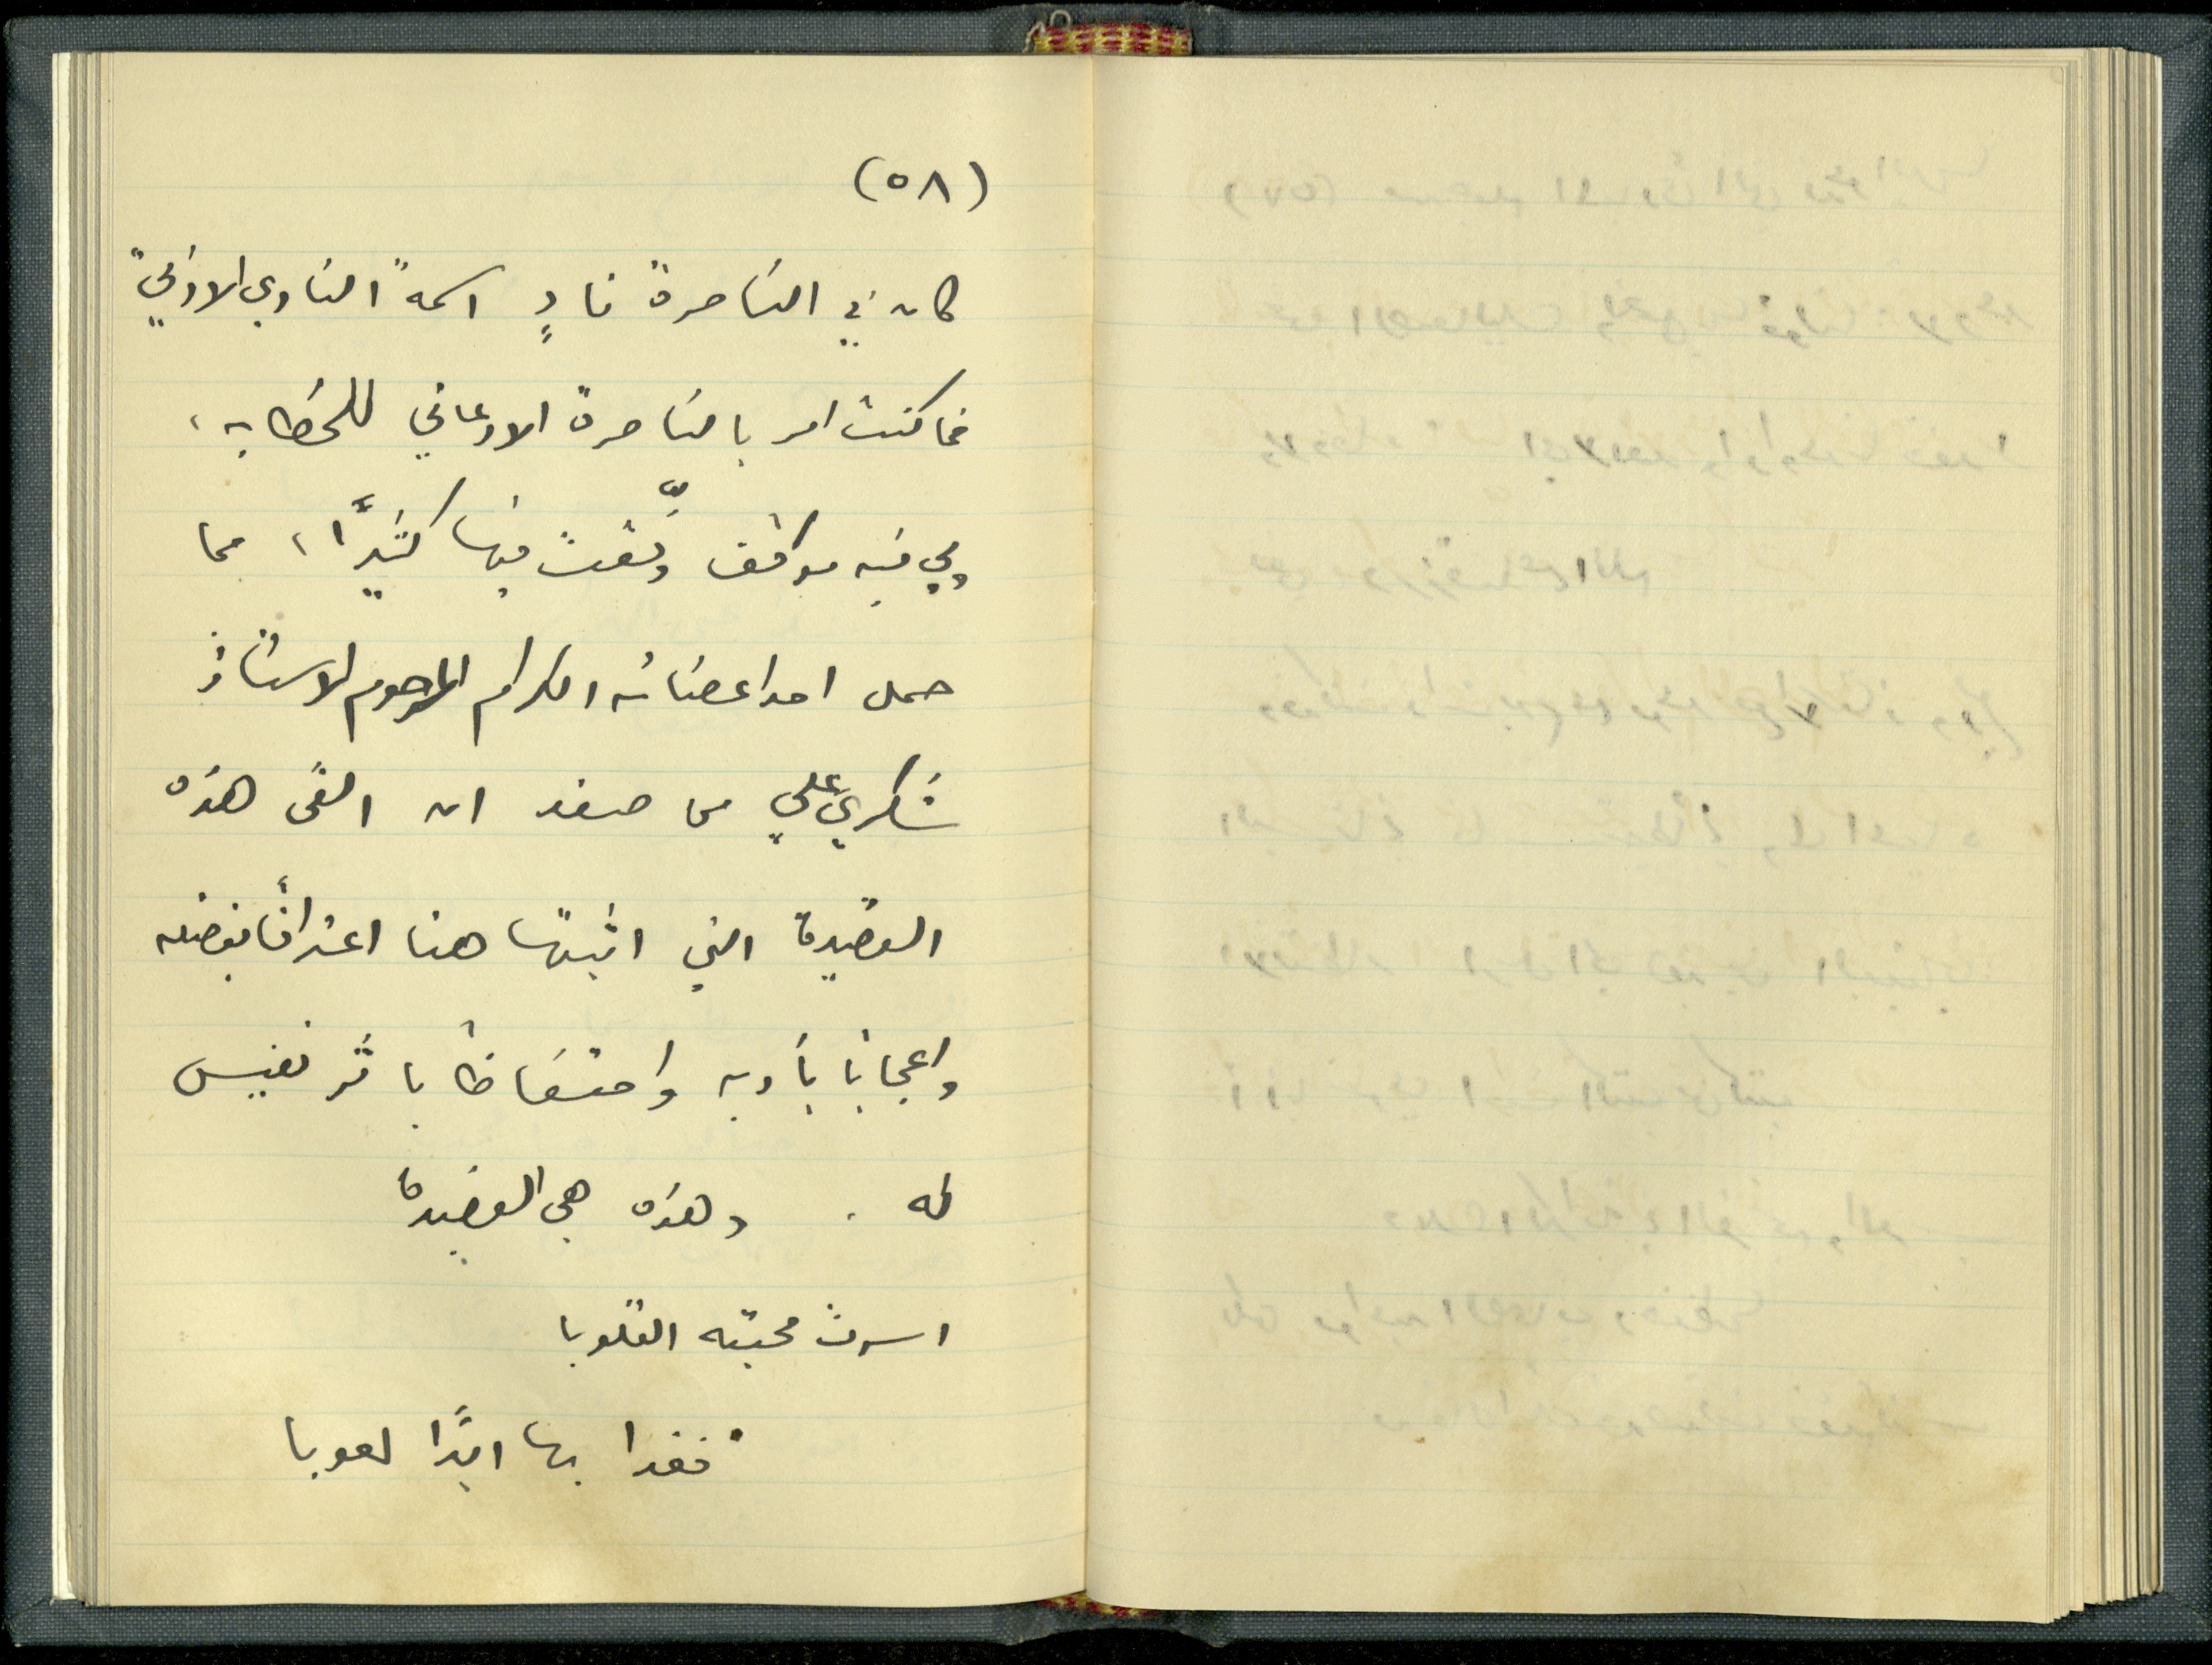 (٥٨)
كان في الناصرة نادٍ اسمه "النادي الادبي"
فما كنت امر بالناصرة الا دعاني للخطابة،
ولي فيه مواقف وُفِّقت فيها كثيرًا، مما
حمل احد اعضائه الكرام المرحوم الاستاذ
شكري علي من صفد ان القى هذه
القصيدة التي اثبتها هنا اعترافًا بفضله
واعجابًا بأدبه واحتفاظًا باثر نفيس
له . وهذه هي القصيدة
اسرت محبته القلوبا
فغدا بها ابدًا لعوبا